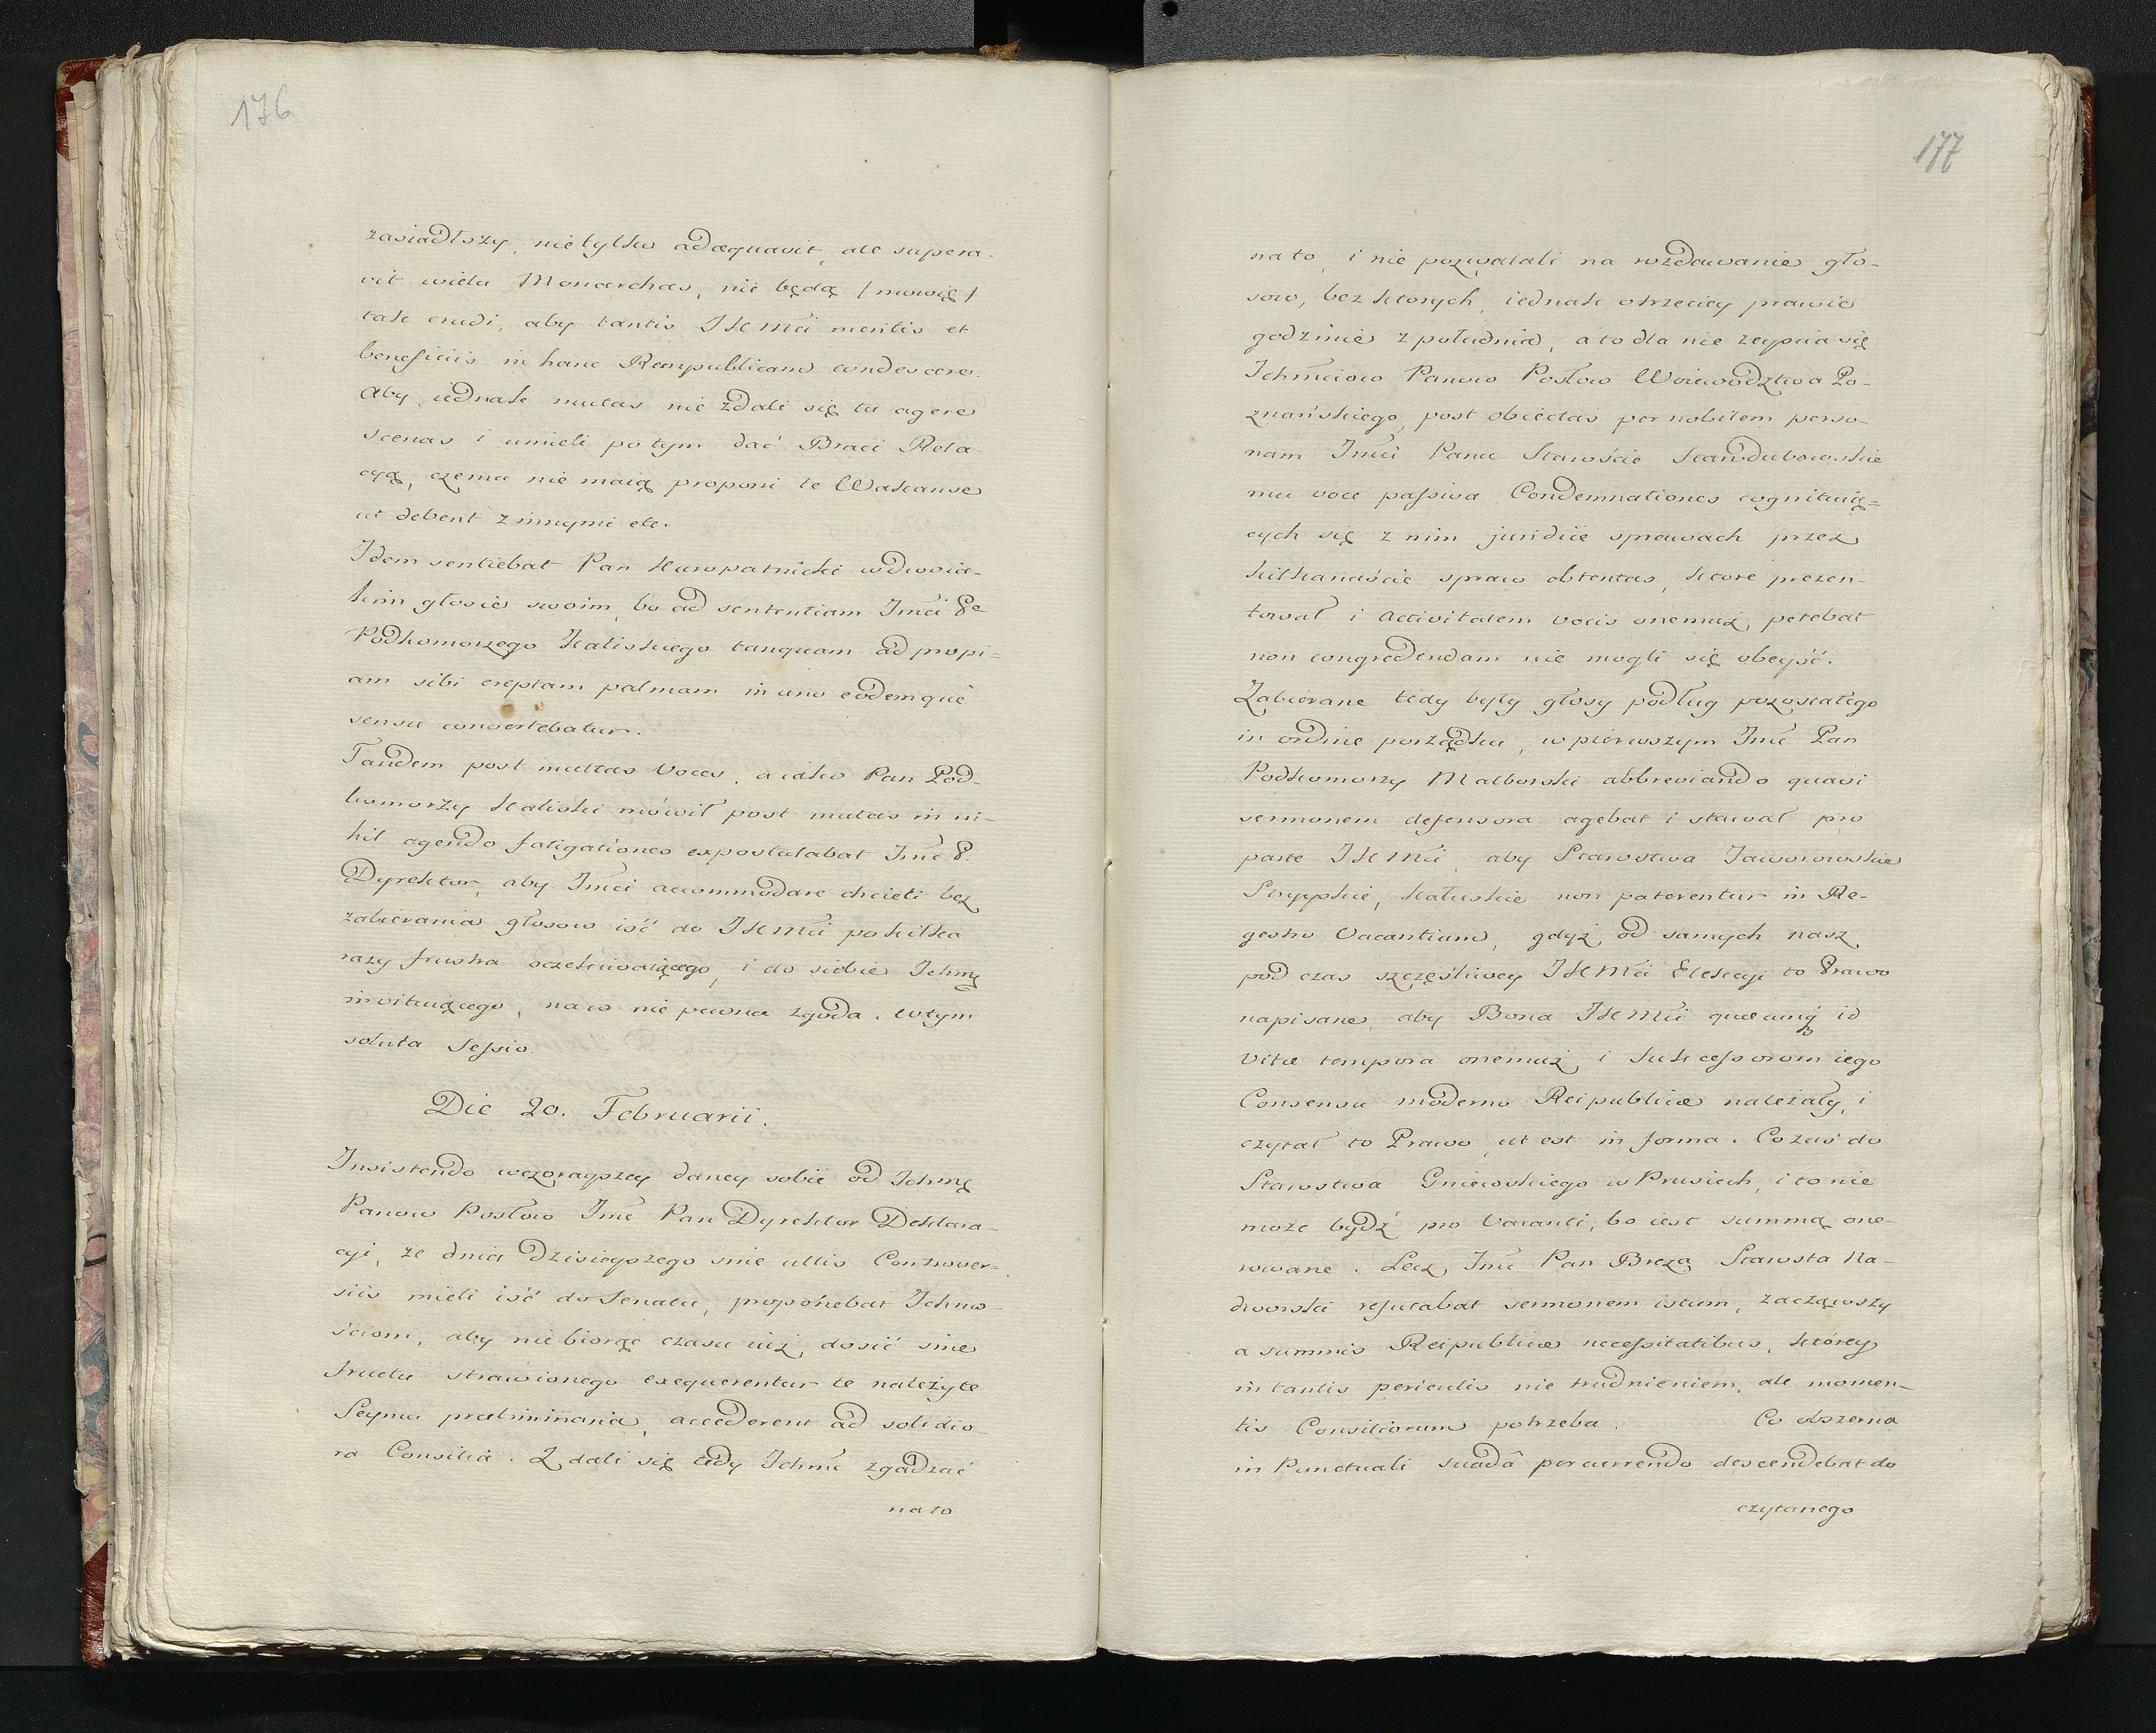 176
zasiadłszy, nie tylko adæquavit, ale supera-
vit wielu Monarchas, nie będą /mowię/
tak crudi, aby tantis JKMći meritis et
beneficiis in hanc Rempublicam condescere.
Aby iednak mutas nie zdali się tu agere
scenas i umieli potym dać Braci Rela-
cyą, czemu nie maią proponi te Wakanse
ut debent z innymi etc.
Idem sentiebat Pan Kuropatnicki w dwoia-
kim głosie swoim, bo ad sententiam Jmći Pa
Podkomorzego Kaliskiego tanquam ad propi-
am sibi ereptam palmam in uno eodemque
sensu convertebatur.
Tandem post multas voces, a iako Pan Pod-
komorzy Kaliski mówił post multas in ni-
hil agendo fatigationes expostulabat Jmć P.
Dyrektor, aby Jmći accommodare chcieli bez
zabierania głosow iść do JKMći po kilka
razy frustra oczekiwaiącego, i do siebie Ichmę
invituiącego, na co nie pewna zgoda. w tym
soluta Sessio.
Die 20. Februarii.
Insistendo wczorayszey daney sobie od Ichmę
Panow Posłow Jmć Pan Dyrektor Deklara-
cyi, że dnia dzisieyszego sine ullis Controver-
siis mieli iść do Senatu, proponebat Ichmo-
ściom, aby nie biorąc czasu iuż dosić sine
fructu strawionego exequerentur te należyte
Seymu præliminaria, accederent ad solidio-
ra Consilia. Zdali się tedy Ichmć zgadzać
na to
177
na to, i nie pozwalali na rozdawanie gło-
sow, bez ktorych iednak o trzeciey prawie
godzinie z południa, a to dla nie zeyścia się
Ichmciow Panow Posłow Woiewodztwa Po-
znańskiego, post obiectas per nobilem perso-
nam Jmći Panu Staroście Starodubowskie
mu voce passiva Condemnationes cognituią-
cych się z nim juridice sprawach przez
kilkanaście spraw obtentas, ktore prezen-
tował i activitatem vocis onemuż petebat
non congredendam nie mogli się obeyść.
Zabierane tedy były głosy podług pozostałego
in ordine porządku, w pierwszym Jmć Pan
Podkomorzy Malborski abbreviando quasi
sermonem defensora agebat i stawał pro
parte JKMći aby Starostwa Jaworowskie
Stryyskie, Kałuskie non paterentur in Re-
gestro Vacantium, gdyż od samych nasz
pod czas szczęśliwey JKMći Elekcyi to Prawo
napisane, aby Bona JKMći quæcunq̃ id
vitæ tempora onemuż i Sukcessorom iego
Consensu moderno Reipublicæ należały, i
czytał to Prawo ut est in forma. Co zaś do
Starostwa Gniewskiego w Prusiech, i to nie
może bydź pro Vacanti, bo iest summą one-
rowane. Lecz Jmć Pan Breza Starosta No-
dworski refutabat sermonem istum, zacząwszy
a summis Reipublicæ necessitatibus, ktorey
in tantis periculis nie trudnieniem, ale momen-
tis Consiliorum potrzeba. Co obszerna
in Punctuali suadâ percurrendo descendebat do
czytanego